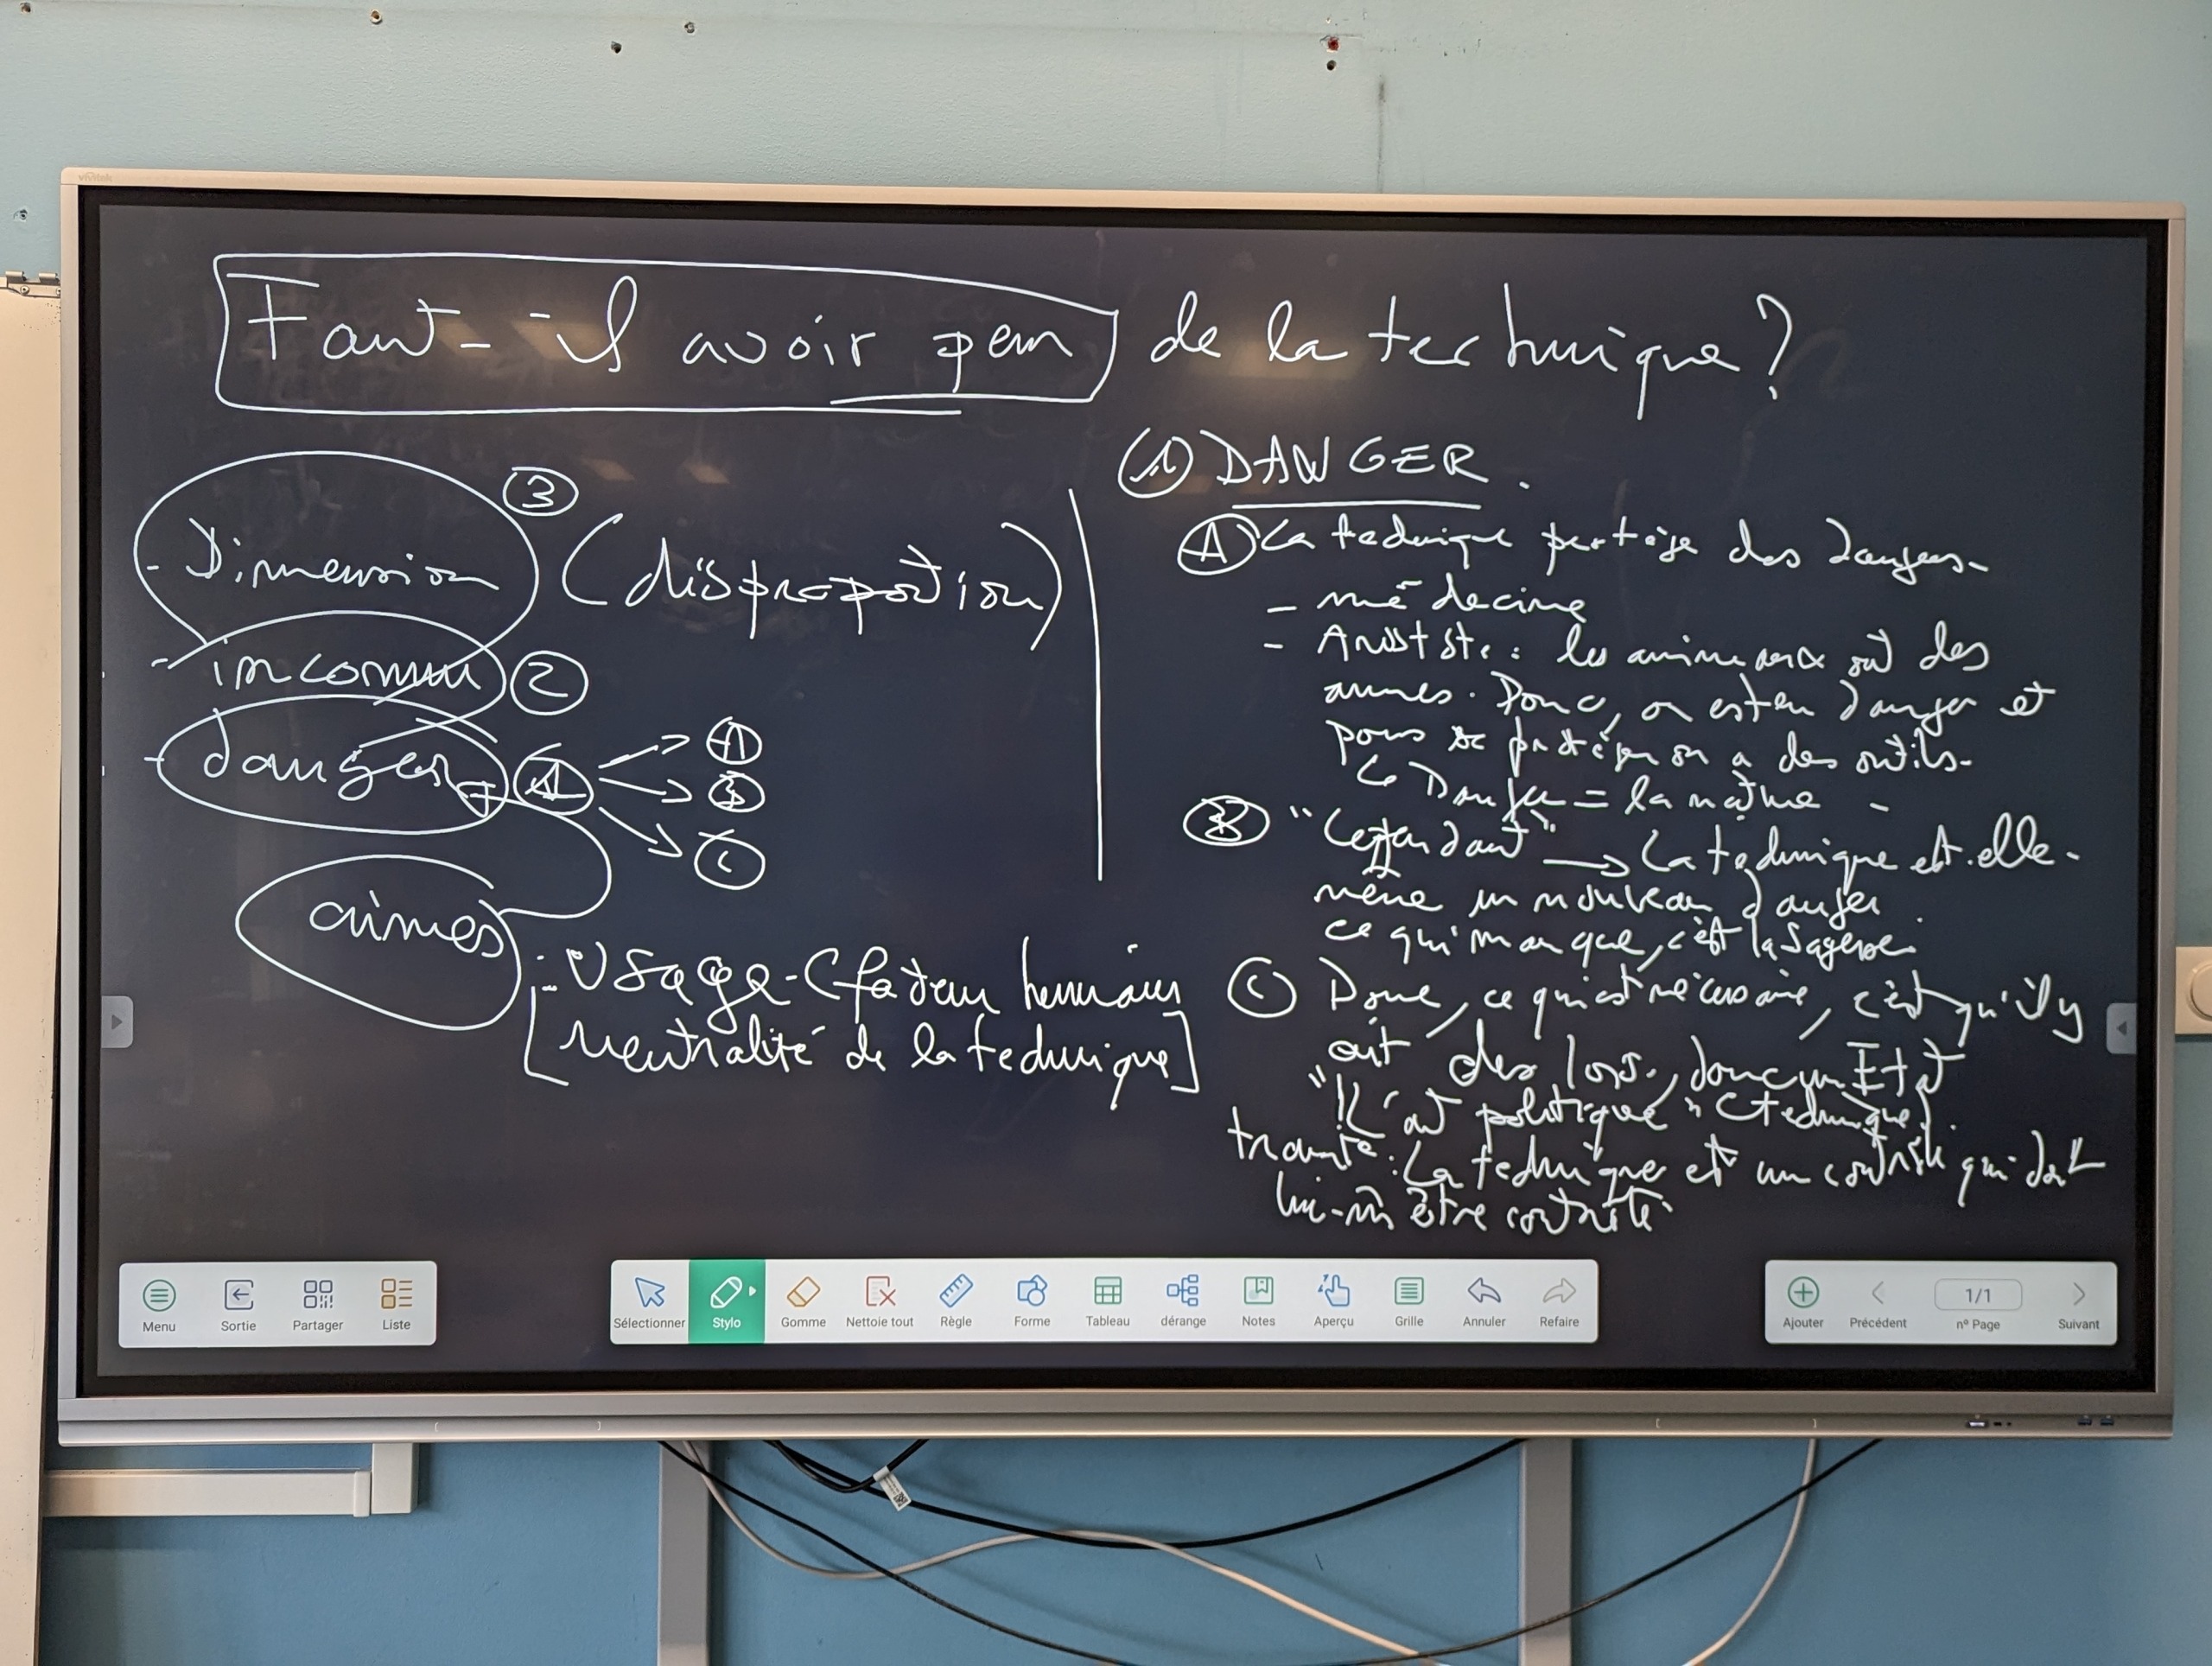 vivitek
Faut-il avoir peur de la technique ?
- Dimension ③ (disproportion)
- inconnu ②
- danger ① → Ⓐ
→ Ⓑ
→ Ⓒ
armes
- Usage - (facteur humain
[neutralité de la technique]
① DANGER.
Ⓐ La technique protège des dangers -
- médecine
- Aristote : les animaux ont des
armes. Donc, on est en danger et
pour se protéger on a des outils.
↳ Danger = la nature -
Ⓑ "Cependant" → La technique est elle-
même un nouveau danger.
ce qui manque, c'est la sagesse.
Ⓒ Donc, ce qui est nécessaire, c'est qu'il y
ait des lois, donc un Etat
"L'art politique" (technique).
La technique est un contrôle qui doit
lui-m̄ être contrôlé.
Menu
Sortie
Partager
Liste
Sélectionner
Stylo
Gomme
Nettoie tout
Règle
Forme
Tableau
dérange
Notes
Aperçu
Grille
Annuler
Refaire
Ajouter
Précédent
1/1
nº Page
Suivant